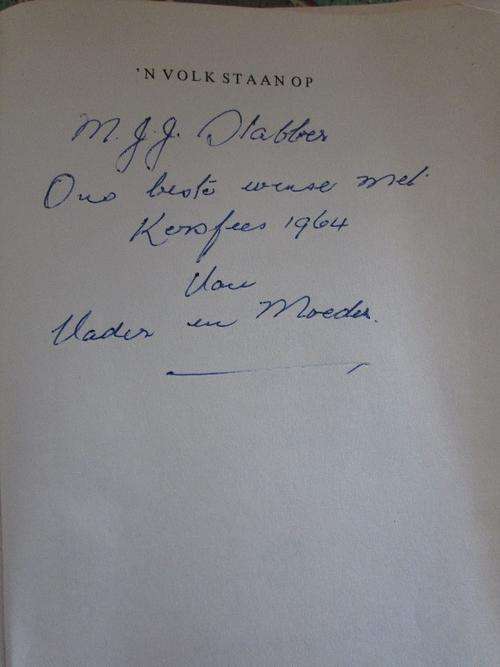 'N VOLK STAAN OP
M. J. J. Slabber
Ons beste wense met
Kersfees 1964
Van
Vader en Moeder.